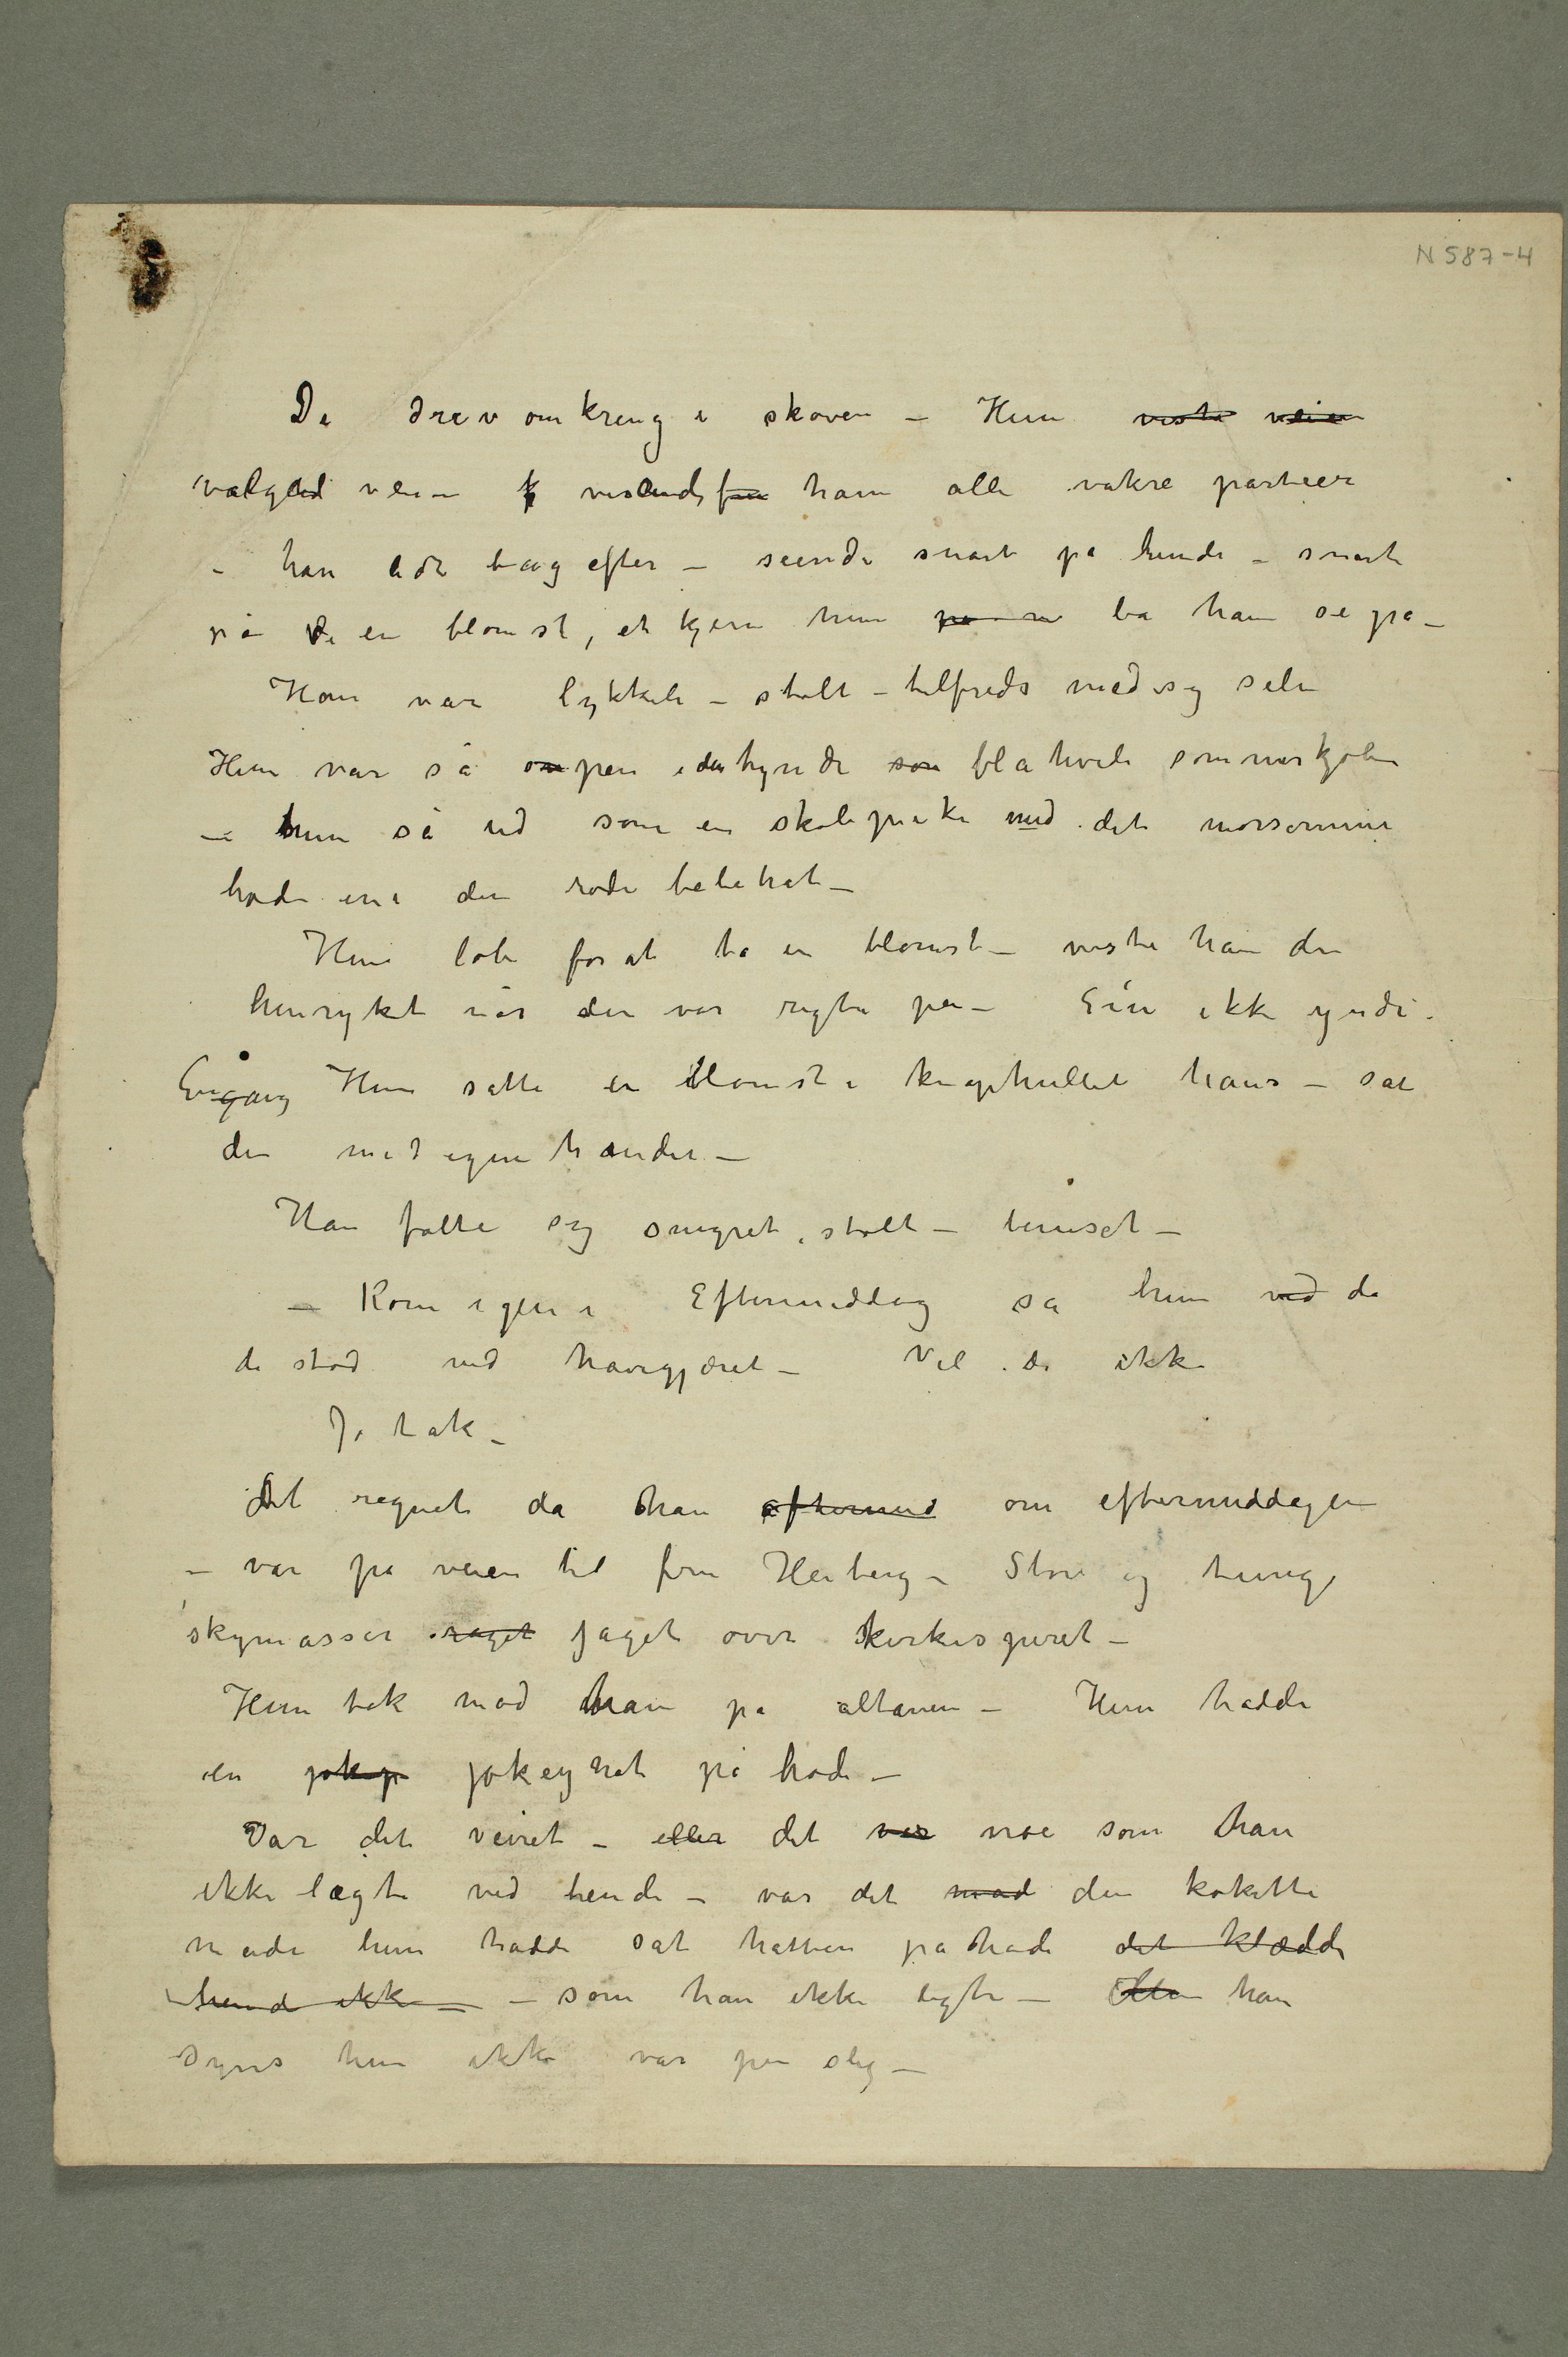 N 587-4
De drev omkring i skoven – Hun viste veien
valgte veien viste ham alle vakre partier
– han led bag efter – seende snart på hende – snart
på en blomst, et kjern hun ba ham se på –
Han var lykkeli – stolt – tilfreds med sig selv
Hun var så pen i den tynde blå hvite sommerkjolen
– hun så ud som en skolepike med det morsomme
hode
Hun løb for at ta en blomst – viste ham den
henrykt når den var rigti pen – Er'n ikke yndi –
Engang Hun satte en blomst i knaphullet hans – sat
den med egne hænder –
Han følte sig smigret, stolt – beruset –
– Kom igjen i Eftermiddag sa hun ved da
de stod ved havegjæret – Vil De ikke
Jo tak –
Det regnet da han eftermid om eftermiddagen
– var på veien til fru Heiberg – Store og tunge
skymasser raget jaget over kirkespiret –
Hun tok mod ham på altanen – Hun hadde
en jokeyhat på hode –
Var det veiret – eller det var noe som han
ikke lægte ved hende – var det den kokette
måde hun hadde sat hatten på hode det klædde
hende ikke – – som han ikke ligte – han
syns hun ikke var pen slig –